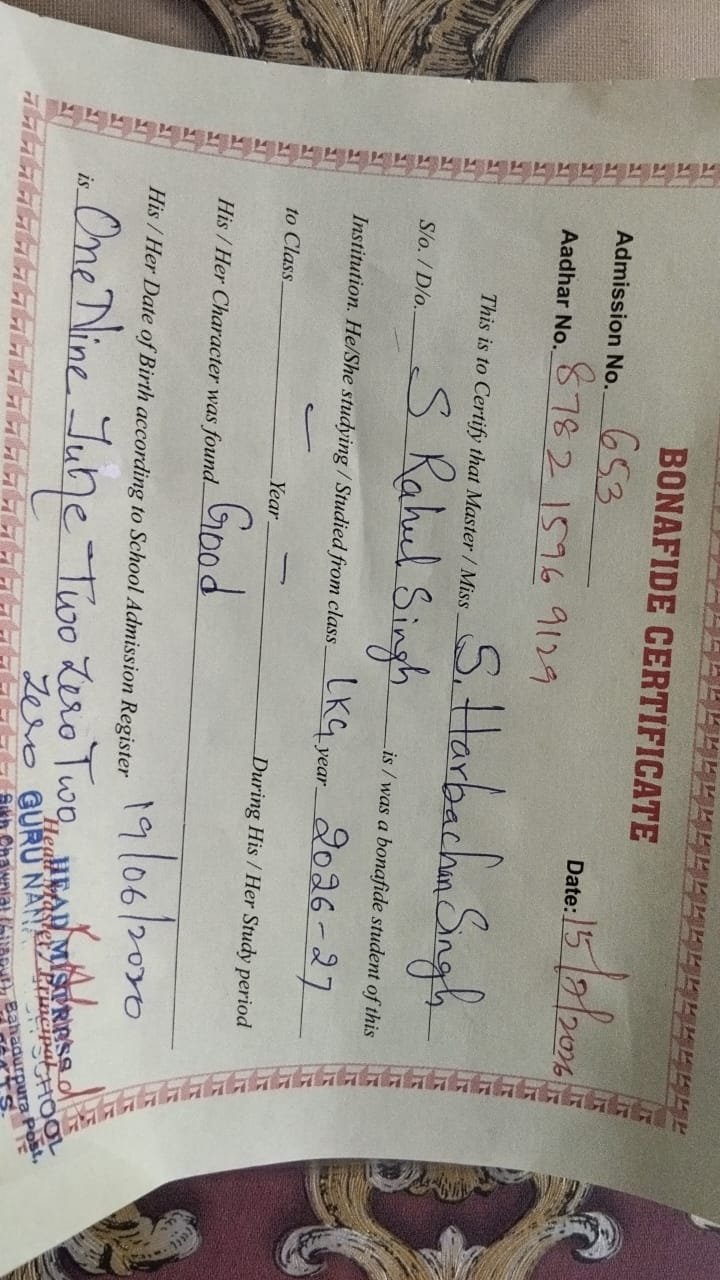 BONAFIDE CERTIFICATE
Admission No. 653
Aadhar No. 8782 1596 9129 Date: 15/7/2026
This is to Certify that Master / Miss S. Harbachan Singh
S/o. / D/o. S Rahul Singh is / was a bonafide student of this
Institution. He/She studying / Studied from class LKG year 2026-27
to Class - Year - During His / Her Study period
His / Her Character was found Good
His / Her Date of Birth according to School Admission Register 19/06/2020
is One Nine June Two Zero Two
Zero
Head Master / Principal
HEAD MISTRESS
GURU NANAK SCHOOL
Sikh Chawni, Bahadurpura Post,